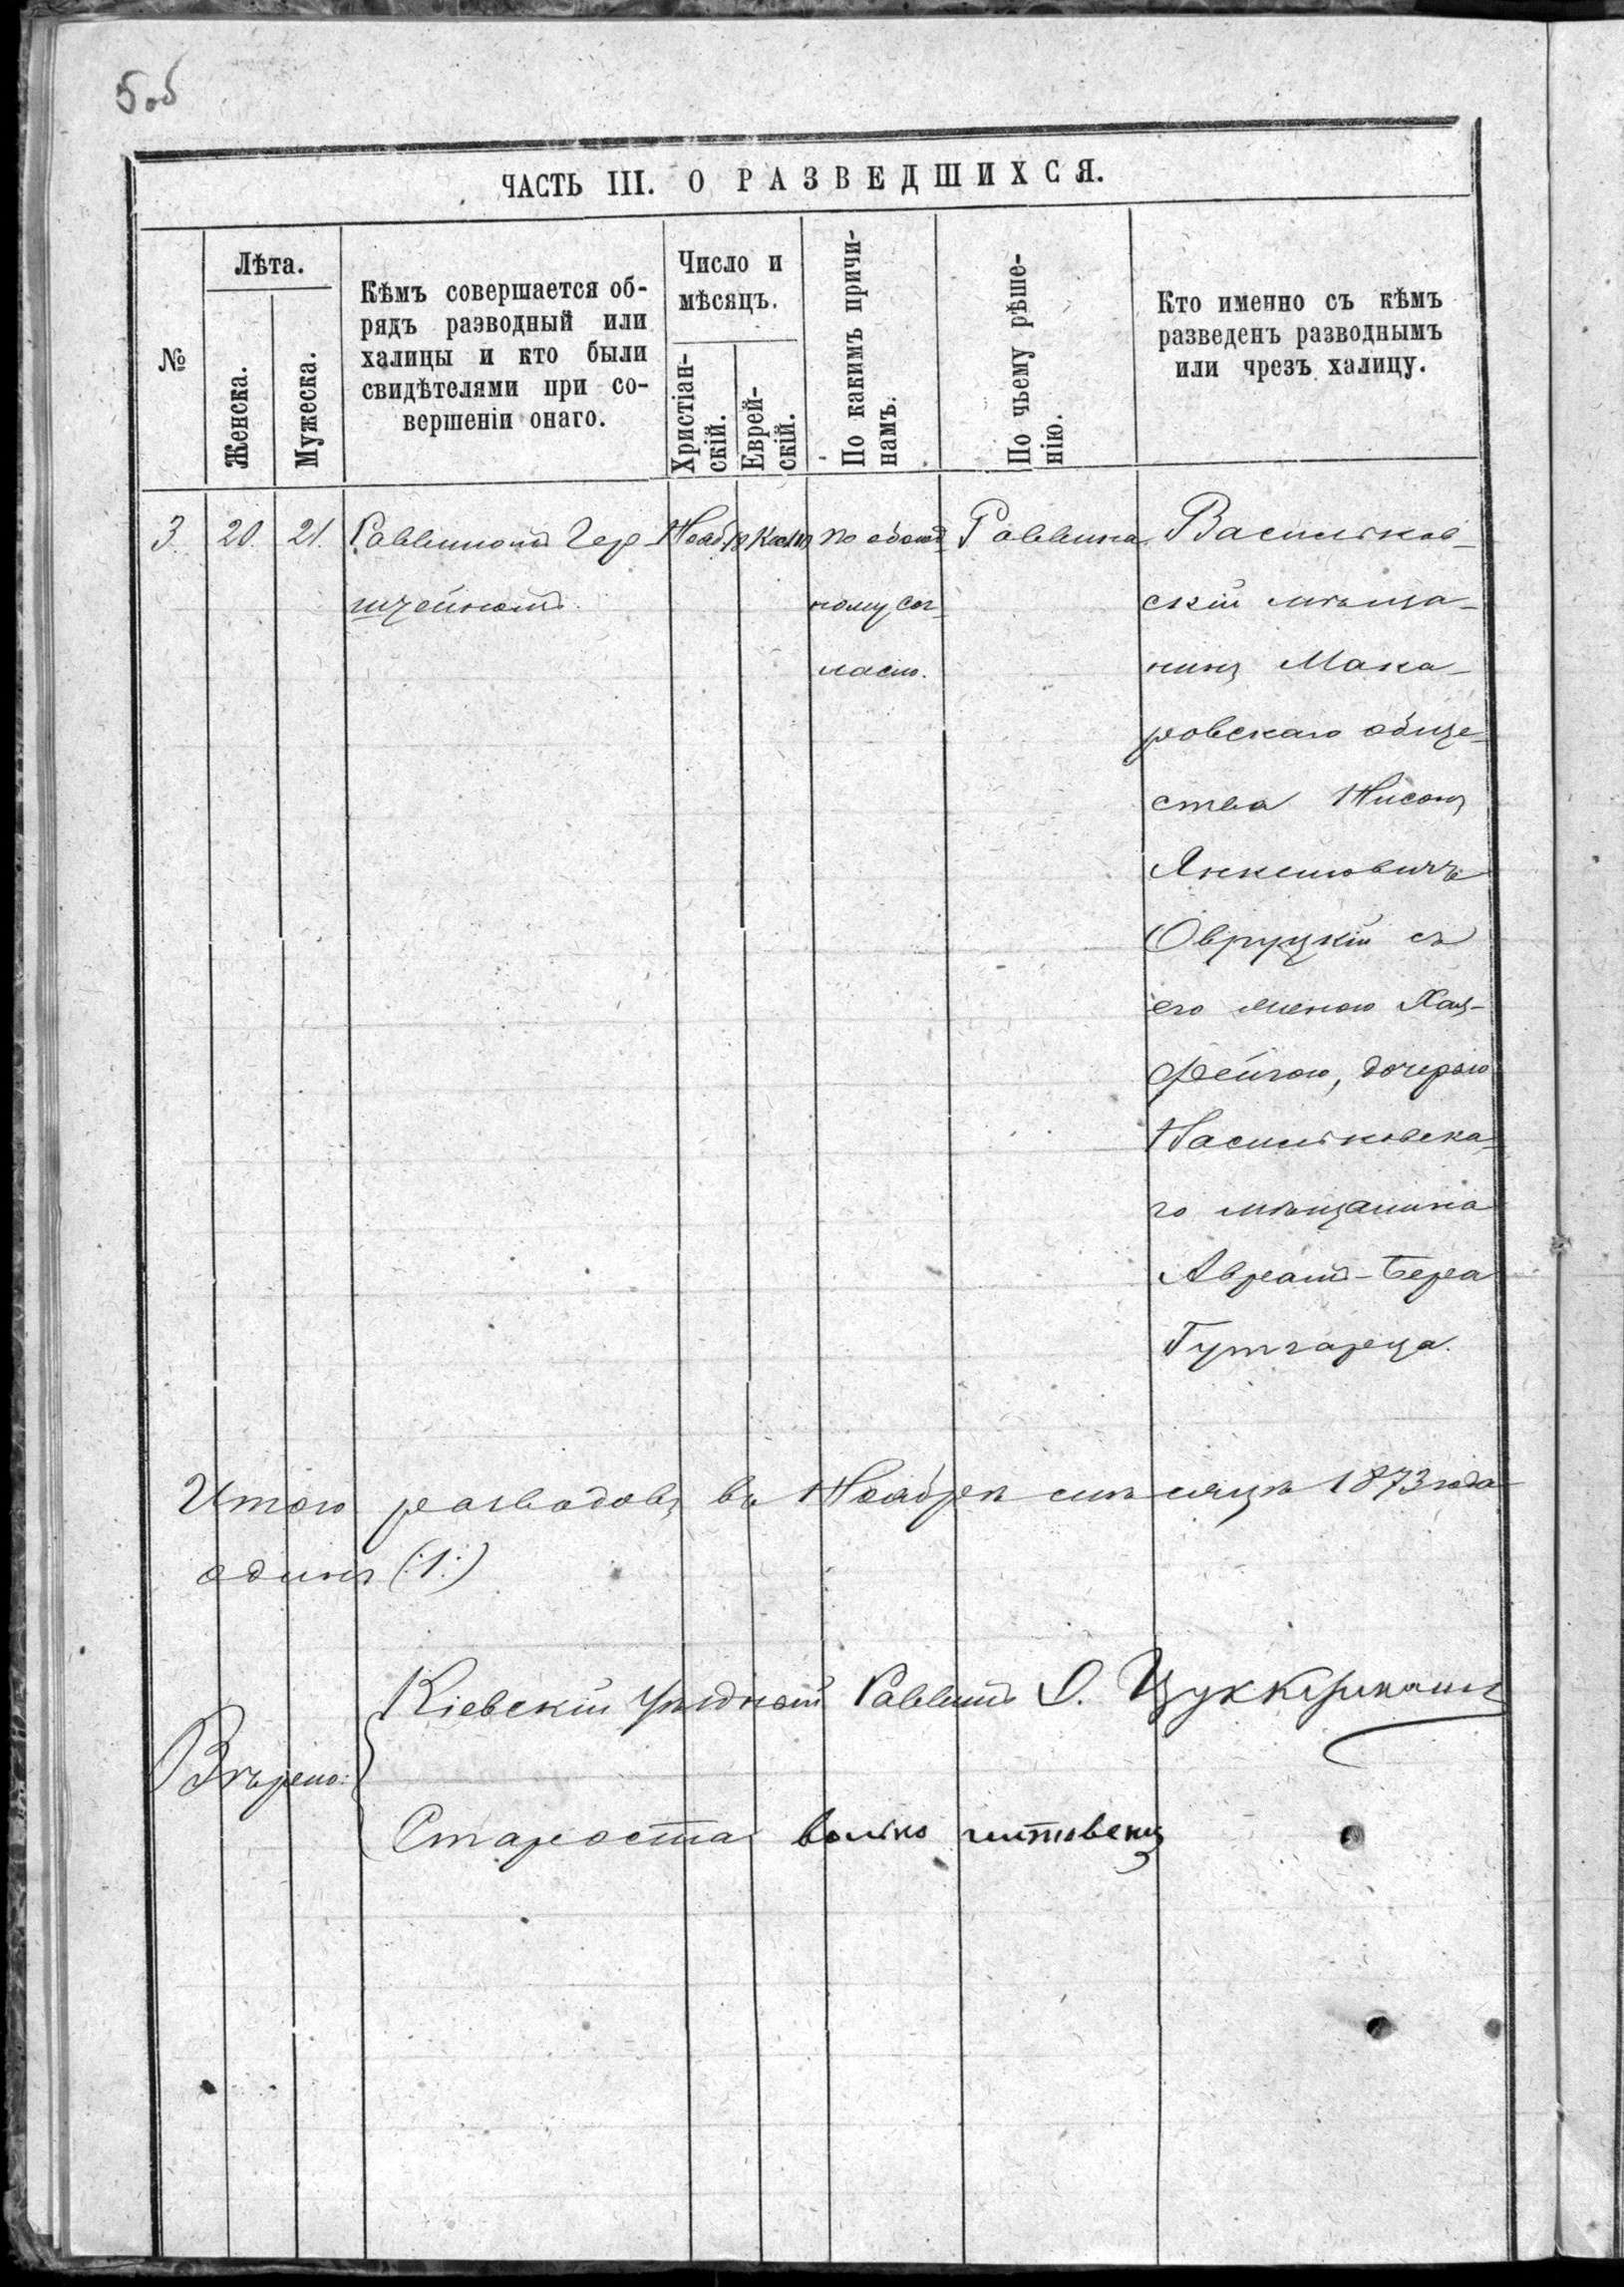 5 об
ЧАСТЬ III. О РАЗВЕДШИХСЯ.
№
Лѣта.
Женска.
Мужеска.
Кѣмъ совершается об-
рядъ разводный или
халицы и кто были
свидѣтелями при со-
вершеніи онаго.
Число и
мѣсяцъ.
Христіан-
скій.
Еврей-
скій.
По какимъ причи-
намъ.
По чьему рѣше-
нію.
Кто именно съ кѣмъ
разведенъ разводнымъ
или чрезъ халицу.
3.
20.
21.
Раввиномъ Гер-
штейномъ.
Нояб.
по обоюд
ному сог-
ласію.
Раввина
Васильков-
скій мѣща-
нинъ Мака-
ровскаго обще-
ства Нисонъ
Янкелевичъ
Овруцкій съ
его женою Хая-
Фейгою, дочерью
Васильковска-
го мѣщанина
Аврамъ-Бера
Гутгарца.
Итого разводовъ въ Ноябрѣ мѣсяцѣ 1873 года
одинъ (:1:)
Вѣрно:
Кіевскій Уѣздный Раввинъ Цуккерманъ
Староста волько литовецъ